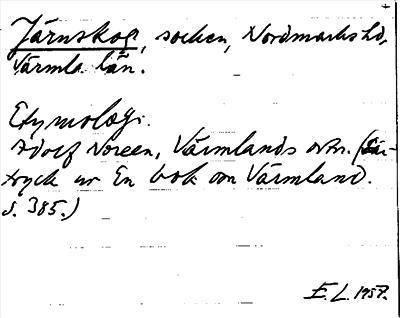 Järnskog, socken, Nordmarks hd,
Värml. län.
Etymologi.
Adolf Noreen, Värmlands ortn. (Sär-
tryck ur En bok om Värmland.
s. 385.)
E. L. 1957.